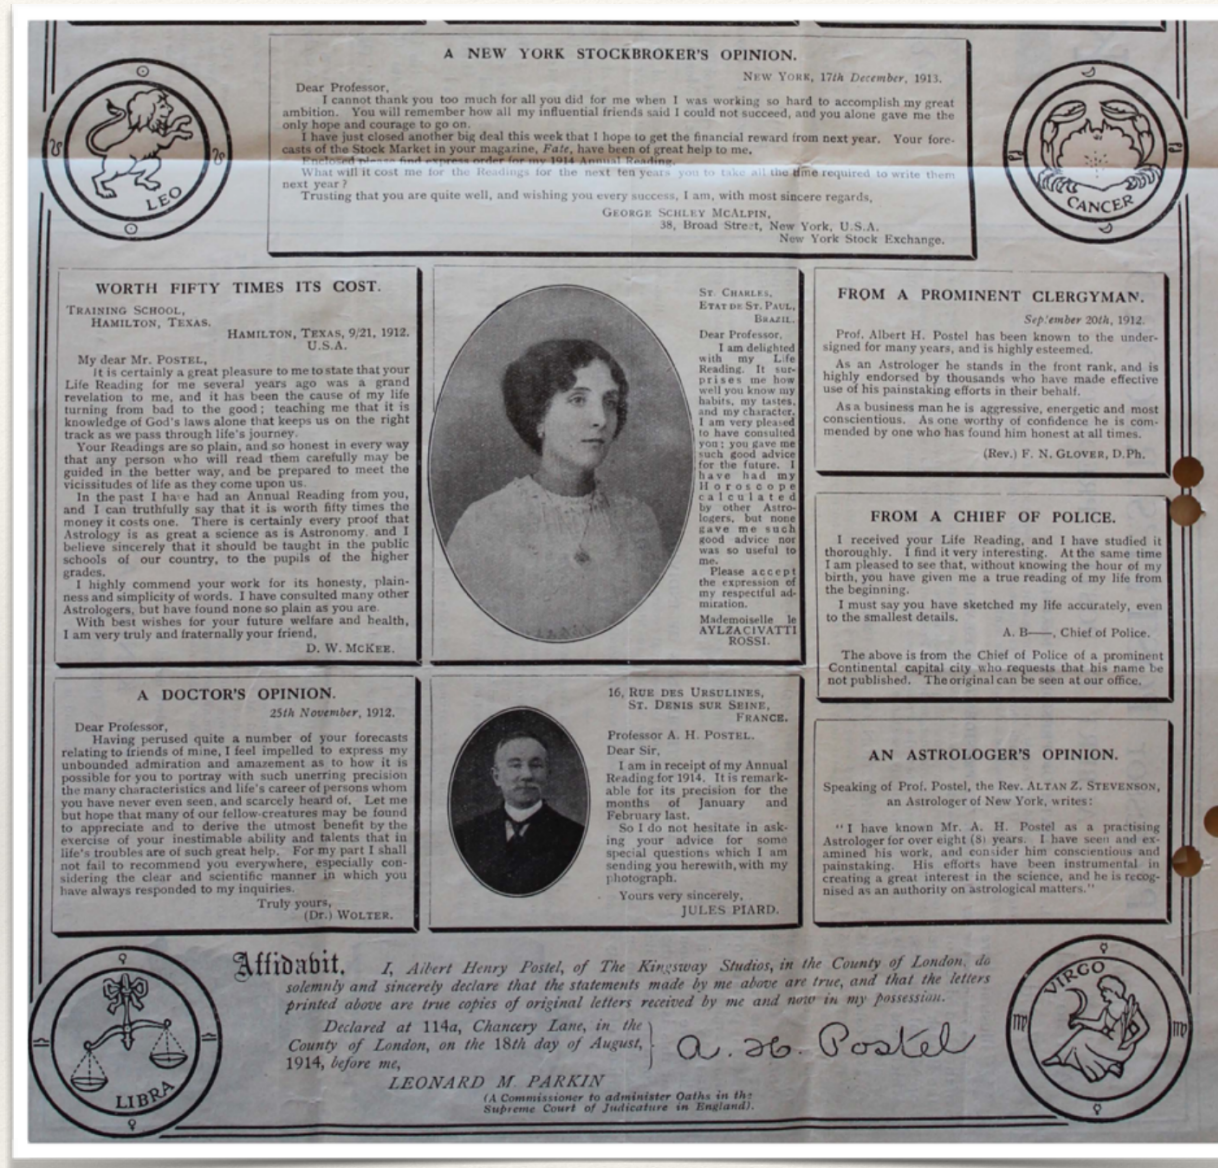 A NEW YORK STOCKBROKER'S OPINION.
NEW YORK, 17th December, 1913.
Dear Professor,
I cannot thank you too much for all you did for me when I was working so hard to accomplish my great
ambition. You will remember how all my influential friends said I could not succeed, and you alone gave me the
only hope and courage to go on.
I have just closed another big deal this week that I hope to get the financial reward from next year. Your fore-
casts of the Stock Market in your magazine, Fate, have been of great help to me.
Enclosed please find express order for my 1914 Annual Reading.
What will it cost me for the Readings for the next ten years you to take all the time required to write them
next year?
Trusting that you are quite well, and wishing you every success, I am, with most sincere regards,
GEORGE SCHLEY MCALPIN,
38, Broad Street, New York, U.S.A.
New York Stock Exchange.
LEO
CANCER
WORTH FIFTY TIMES ITS COST.
TRAINING SCHOOL,
HAMILTON, TEXAS.
HAMILTON, TEXAS, 9/21, 1912.
U.S.A.
My dear Mr. POSTEL,
It is certainly a great pleasure to me to state that your
Life Reading for me several years ago was a grand
revelation to me, and it has been the cause of my life
turning from bad to the good; teaching me that it is
knowledge of God's laws alone that keeps us on the right
track as we pass through life's journey.
Your Readings are so plain, and so honest in every way
that any person who will read them carefully may be
guided in the better way, and be prepared to meet the
vicissitudes of life as they come upon us.
In the past I have had an Annual Reading from you,
and I can truthfully say that it is worth fifty times the
money it costs one. There is certainly every proof that
Astrology is as great a science as is Astronomy, and I
believe sincerely that it should be taught in the public
schools of our country, to the pupils of the higher
grades.
I highly commend your work for its honesty, plain-
ness and simplicity of words. I have consulted many other
Astrologers, but have found none so plain as you are.
With best wishes for your future welfare and health,
I am very truly and fraternally your friend,
D. W. MCKEE.
ST. CHARLES,
ETAT DE ST. PAUL,
BRAZIL.
Dear Professor,
I am delighted
with my Life
Reading. It sur-
prises me how
well you know my
habits, my tastes,
and my character.
I am very pleased
to have consulted
you; you gave me
such good advice
for the future. I
have had my
Horoscope
calculated
by other Astro-
logers, but none
gave me such
good advice nor
was so useful to
me.
Please accept
the expression of
my respectful ad-
miration.
Mademoiselle le
AYLZACIVATTI
ROSSI.
FROM A PROMINENT CLERGYMAN.
September 20th, 1912.
Prof. Albert H. Postel has been known to the under-
signed for many years, and is highly esteemed.
As an Astrologer he stands in the front rank, and is
highly endorsed by thousands who have made effective
use of his painstaking efforts in their behalf.
As a business man he is aggressive, energetic and most
conscientious. As one worthy of confidence he is com-
mended by one who has found him honest at all times.
(Rev.) F. N. GLOVER, D.Ph.
FROM A CHIEF OF POLICE.
I received your Life Reading, and I have studied it
thoroughly. I find it very interesting. At the same time
I am pleased to see that, without knowing the hour of my
birth, you have given me a true reading of my life from
the beginning.
I must say you have sketched my life accurately, even
to the smallest details.
A. B——, Chief of Police.
The above is from the Chief of Police of a prominent
Continental capital city who requests that his name be
not published. The original can be seen at our office.
A DOCTOR'S OPINION.
25th November, 1912.
Dear Professor,
Having perused quite a number of your forecasts
relating to friends of mine, I feel impelled to express my
unbounded admiration and amazement as to how it is
possible for you to portray with such unerring precision
the many characteristics and life's career of persons whom
you have never even seen, and scarcely heard of. Let me
but hope that many of our fellow-creatures may be found
to appreciate and to derive the utmost benefit by the
exercise of your inestimable ability and talents that in
life's troubles are of such great help. For my part I shall
not fail to recommend you everywhere, especially con-
sidering the clear and scientific manner in which you
have always responded to my inquiries.
Truly yours,
(Dr.) WOLTER.
16, RUE DES URSULINES,
ST. DENIS SUR SEINE,
FRANCE.
Professor A. H. POSTEL.
Dear Sir,
I am in receipt of my Annual
Reading for 1914. It is remark-
able for its precision for the
months of January and
February last.
So I do not hesitate in ask-
ing your advice for some
special questions which I am
sending you herewith, with my
photograph.
Yours very sincerely,
JULES PIARD.
AN ASTROLOGER'S OPINION.
Speaking of Prof. Postel, the Rev. ALTAN Z. STEVENSON,
an Astrologer of New York, writes:
"I have known Mr. A. H. Postel as a practising
Astrologer for over eight (8) years. I have seen and ex-
amined his work, and consider him conscientious and
painstaking. His efforts have been instrumental in
creating a great interest in the science, and he is recog-
nised as an authority on astrological matters."
LIBRA
Affidavit. I, Albert Henry Postel, of The Kingsway Studios, in the County of London, do
solemnly and sincerely declare that the statements made by me above are true, and that the letters
printed above are true copies of original letters received by me and now in my possession.
Declared at 114a, Chancery Lane, in the
County of London, on the 18th day of August,
1914, before me,
A. H. Postel
LEONARD M PARKIN
(A Commissioner to administer Oaths in the
Supreme Court of Judicature in England).
VIRGO